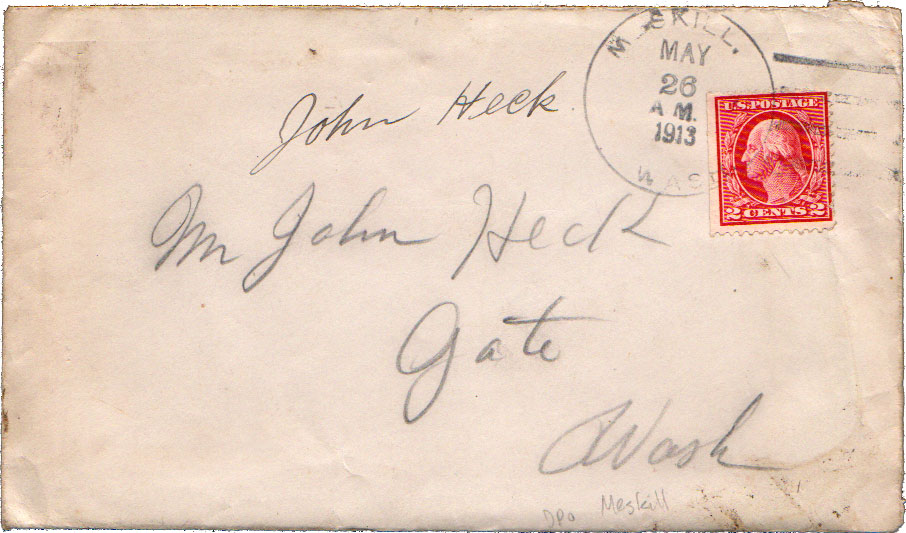 M SKILL.
MAY
26
A M.
1913
WAS
U.S. POSTAGE
2 CENTS 2
John Heck
Mr John Heck
Gate
Wash
DPO Meskill